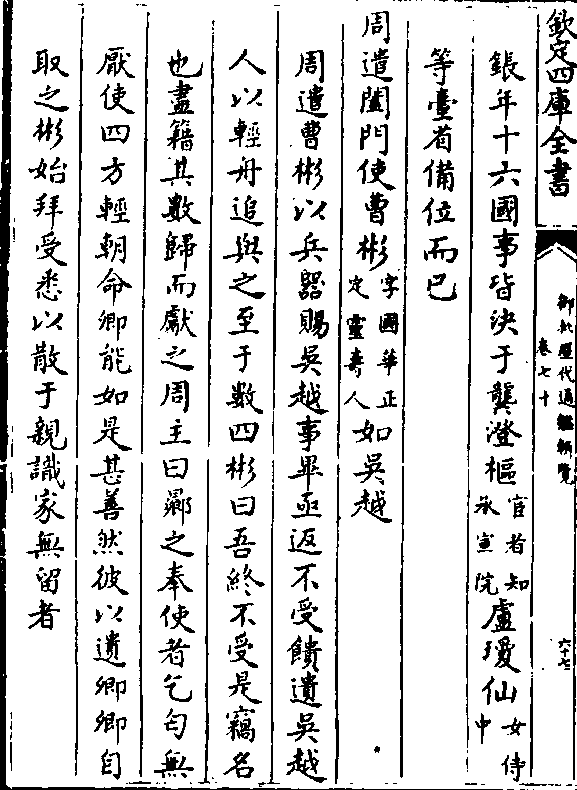 欽定四庫全書
御批歷代通鑑輯覽
卷七十
六十七
鋹年十六國事皆決于龔澄樞宦者知承宣院盧瓊仙女侍中
等臺省備位而已
周遣閤門使曹彬字國華正定靈壽人如吳越
周遣曹彬以兵器賜吳越事畢亟返不受饋遺吳越
人以輕舟追與之至于數四彬曰吾終不受是竊名
也盡籍其數歸而獻之周主曰鄉之奉使者乞匄無
厭使四方輕朝命卿能如是甚善然彼以遺卿卿自
取之彬始拜受悉以散于親識家無留者